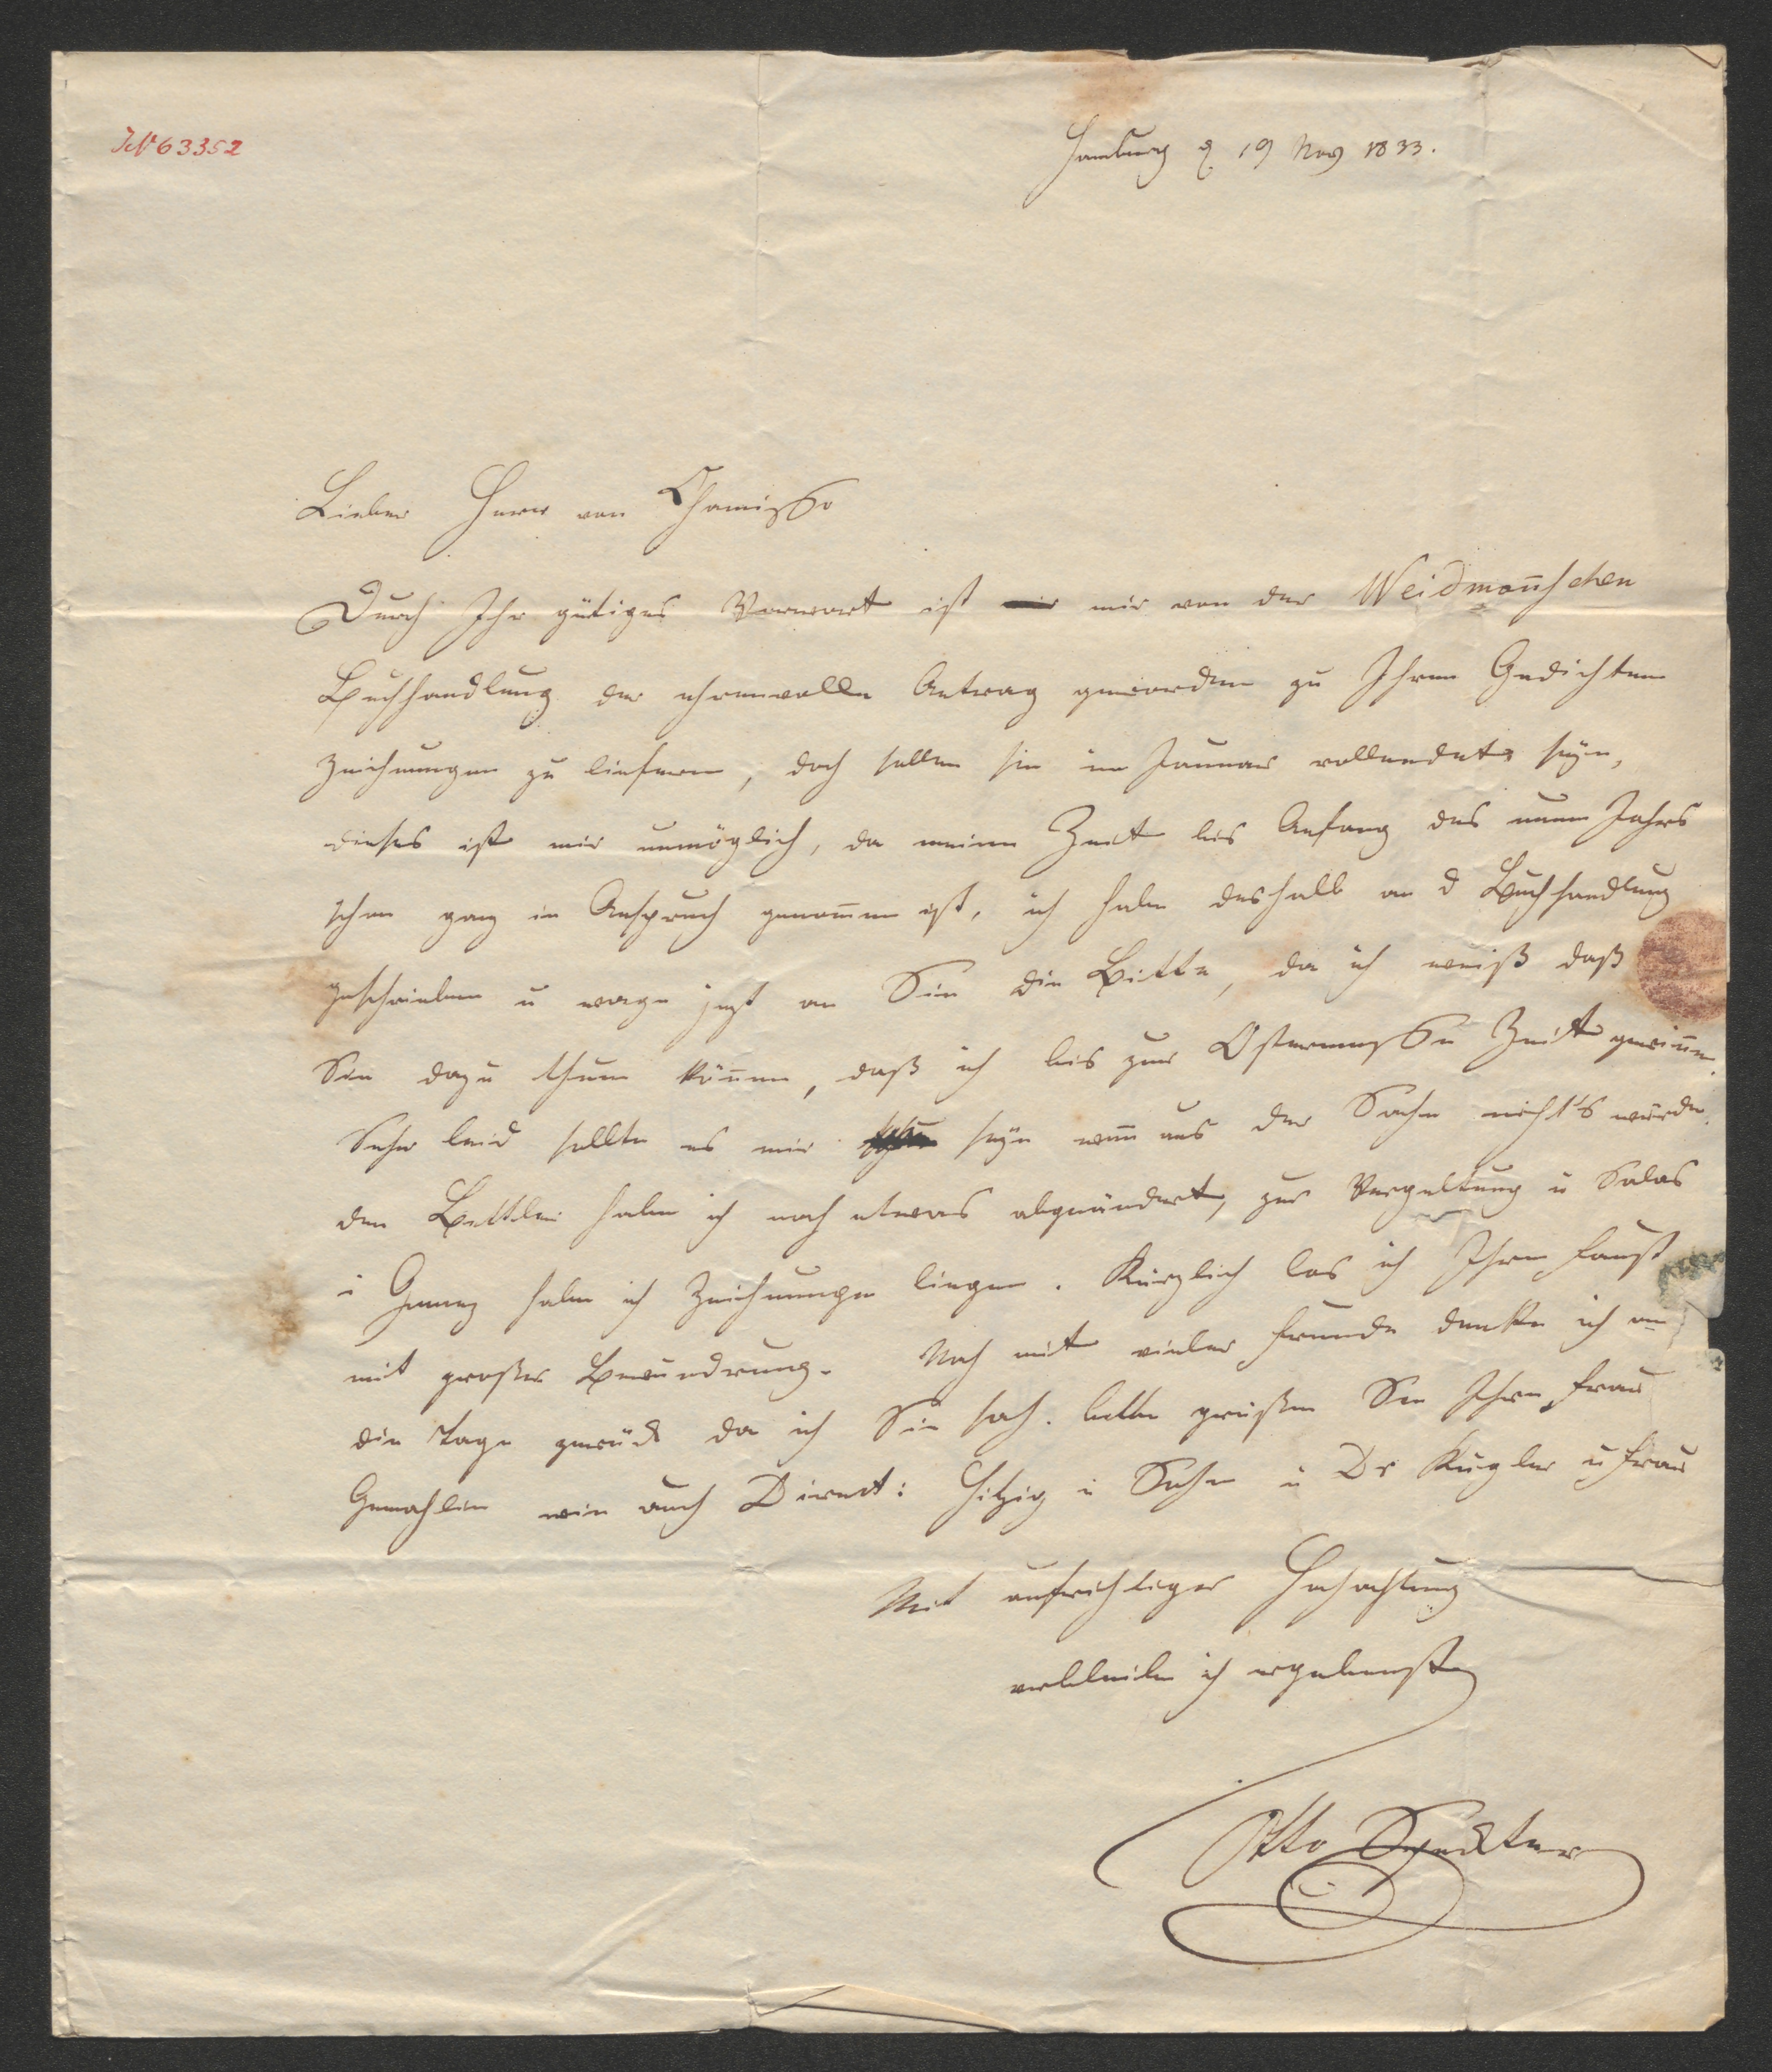 IN 63352
Hamburg d 19 Nov 1833.
Lieber Herr von Chamisso
Durch Ihr gütiges Vorwort ist mir von der Weidmañschen
Buchhandlung der ehrenvolle Antrag geworden zu Ihren Gedichten
Zeichnungen zu liefern, doch sollen sie im Januar vollendet seyn,
dieses ist mir unmöglich, da meine Zeit bis Anfang des neuen Jahrs
schon ganz in Anspruch genom̄en ist, ich habe deshalb an d Buchhandlung
geschrieben u wage jezt an Sie die Bitte, da ich weiß daß
Sie dazu thun köñen, daß ich bis zur Ostermesse Zeit gewiñe.
Sehr leid sollte es mir seyn weñ aus der Sache nicht's würde.
den Bettler habe ich noch etwas abgeändert, zur Vergeltung u Salas
i Gomez habe ich Zeichnungen liegen. Kürzlich las ich Ihren Faust
mit großer Bewundrung. Noch mit vieler Freude denke ich an
die Tage zurück da ich Sie sah. bitte grüßen Sie Ihre Frau
Gemahlin wie auch Direct: Hitzig u Sohn u Dr Kugler u Frau
Mit aufrichtiger Hochachtung
verbleibe ich ergebenst
Otto Speckter